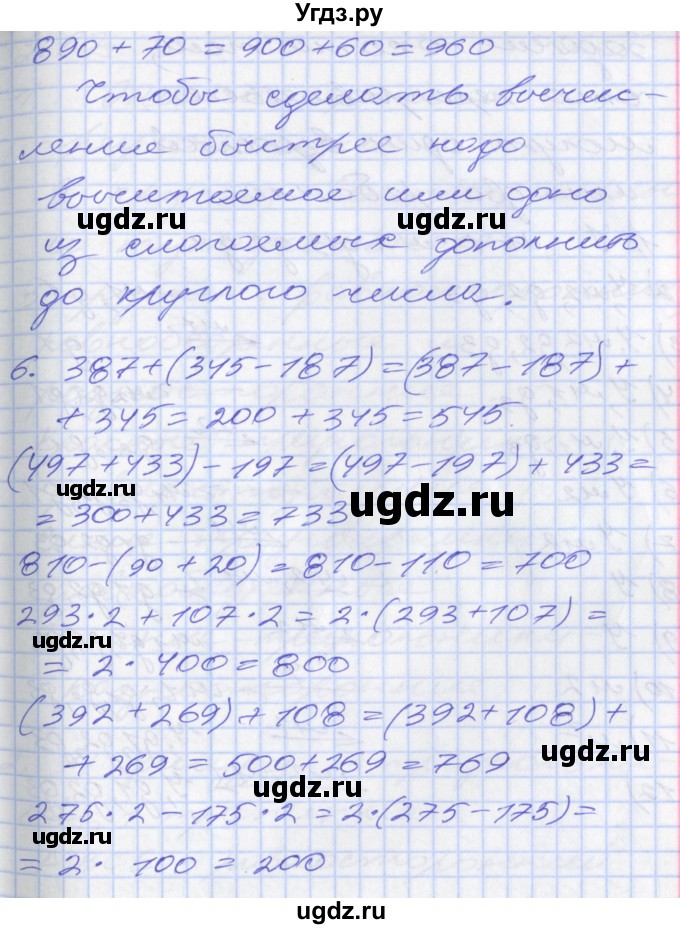 Угдз.ру
890 + 70 = 900 + 60 = 960
Чтобы сделать вычис-
ление быстрее надо
вычитаемое или одно
ugdz.ru ugdz.ru
из слогаемых дополнить
до круглого числа.
6. 387+(345-187)=(387-187)+
+ 345 = 200 + 345 = 545
(497+433)-197=(497-197)+433=
ugdz.ru ugdz.ru
= 300+433 = 733
810-(90+20) = 810-110 = 700
293·2 + 107·2 = 2·(293+107) =
ugdz.ru
= 2·400 = 800
(392+269)+108=(392+108)+
ugdz.ru
+ 269 = 500+269 = 769
ugdz.ru
275·2-175·2=2·(275-175)=
= 2· 100 = 200
ugdz.ru